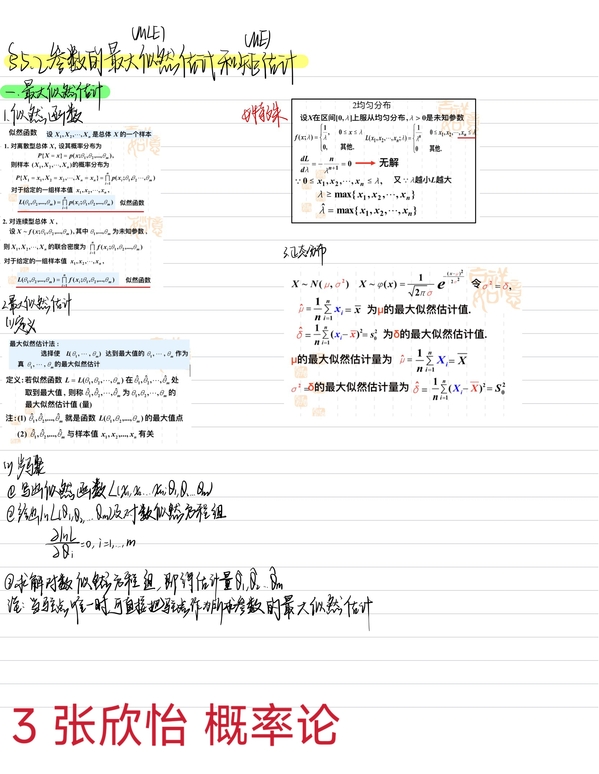 (MLE) (ME)
§5.2 参数的最大似然估计和矩估计
一.最大似然估计
1.似然函数
似然函数 设 X₁,X₂,⋯,Xₙ 是总体 X 的一个样本
1. 对离散型总体 X, 设其概率分布为
P{X = x} = p(x;θ₁,θ₂,...,θₘ),
则样本 (X₁,X₂,⋯,Xₙ)的概率分布为
P{X₁ = x₁, X₂ = x₂,⋯,Xₙ = xₙ} = ∏ᵢ₌₁ⁿ p(xᵢ;θ₁,θ₂⋯,θₘ)
对于给定的一组样本值 x₁,x₂,⋯,xₙ,
L(θ₁,θ₂,...,θₘ) = ∏ᵢ₌₁ⁿ p(xᵢ;θ₁,θ₂,...,θₘ) 似然函数
2. 对连续型总体 X,
设 X ~ f(x;θ₁,θ₂,...,θₘ), 其中 θ₁,...,θₘ 为未知参数,
则 X₁,X₂,⋯,Xₙ 的联合密度为 ∏ᵢ₌₁ⁿ f(xᵢ;θ₁,...,θₘ)
对于给定的一组样本值 x₁,x₂,⋯,xₙ,
L(θ₁,θ₂,...,θₘ) = ∏ᵢ₌₁ⁿ f(xᵢ;θ₁,θ₂,...,θₘ) 似然函数
2.最大似然估计
(1)定义
最大似然估计法:
选择使 L(θ₁,⋯,θₘ) 达到最大值的 θ̂₁,⋯,θ̂ₘ 作为
真 θ₁,⋯,θₘ 的最大似然估计
定义: 若似然函数 L = L(θ₁,θ₂,...,θₘ) 在 θ̂₁,θ̂₂,...,θ̂ₘ 处
取到最大值, 则称 θ̂₁,θ̂₂,...,θ̂ₘ 为 θ₁,θ₂,...,θₘ 的
最大似然估计值 (量)
注: (1) θ̂₁,θ̂₂,...,θ̂ₘ 就是函数 L(θ₁,θ₂,...,θₘ) 的最大值点
(2) θ̂₁,θ̂₂,...,θ̂ₘ 与样本值 x₁,x₂,...,xₙ 有关
步骤
① 写出似然函数 L(x₁,x₂,...xₙ;θ₁,θ₂...θₘ)
② 给出lnL(θ₁,θ₂,...θₘ)及对数似然方程组
∂lnL/∂θᵢ = 0, i=1,...,m
③求解对数似然方程组,即得估计量θ̂₁,θ̂₂...θ̂ₘ
注: 当驻点唯一时,可直接把驻点作为所求参数的最大似然估计
特殊
2均匀分布
设X在区间[0,λ]上服从均匀分布, λ > 0是未知参数
f(x;λ) = {1/λ, 0 ≤ x ≤ λ; 0, 其他. L(x₁,x₂,⋯,xₙ;λ) = {1/λⁿ, 0 ≤ x₁,x₂,⋯,xₙ ≤ λ; 0 其他.
dL/dλ = −n/λⁿ⁺¹ = 0 → 无解
∵ 0 ≤ x₁,x₂,⋯,xₙ ≤ λ, 又∵λ越小L越大
λ ≥ max{x₁,x₂,⋯,xₙ}
λ̂ = max{x₁,x₂,⋯,xₙ}
3.正态分布
X ~ N(μ,σ²) X ~ φ(x) = 1/(√2π σ) e^(−(x−μ)²/2σ²) 令σ² = δ,
μ̂ = 1/n ∑ᵢ₌₁ⁿ xᵢ = x̄ 为μ的最大似然估计值.
δ̂ = 1/n ∑ᵢ₌₁ⁿ (xᵢ−x̄)² = s₀² 为δ的最大似然估计值.
μ的最大似然估计量为 μ̂ = 1/n ∑ᵢ₌₁ⁿ Xᵢ = X̄
σ² = δ的最大似然估计量为 δ̂ = 1/n ∑ᵢ₌₁ⁿ (Xᵢ−X̄)² = S₀²
3 张欣怡 概率论